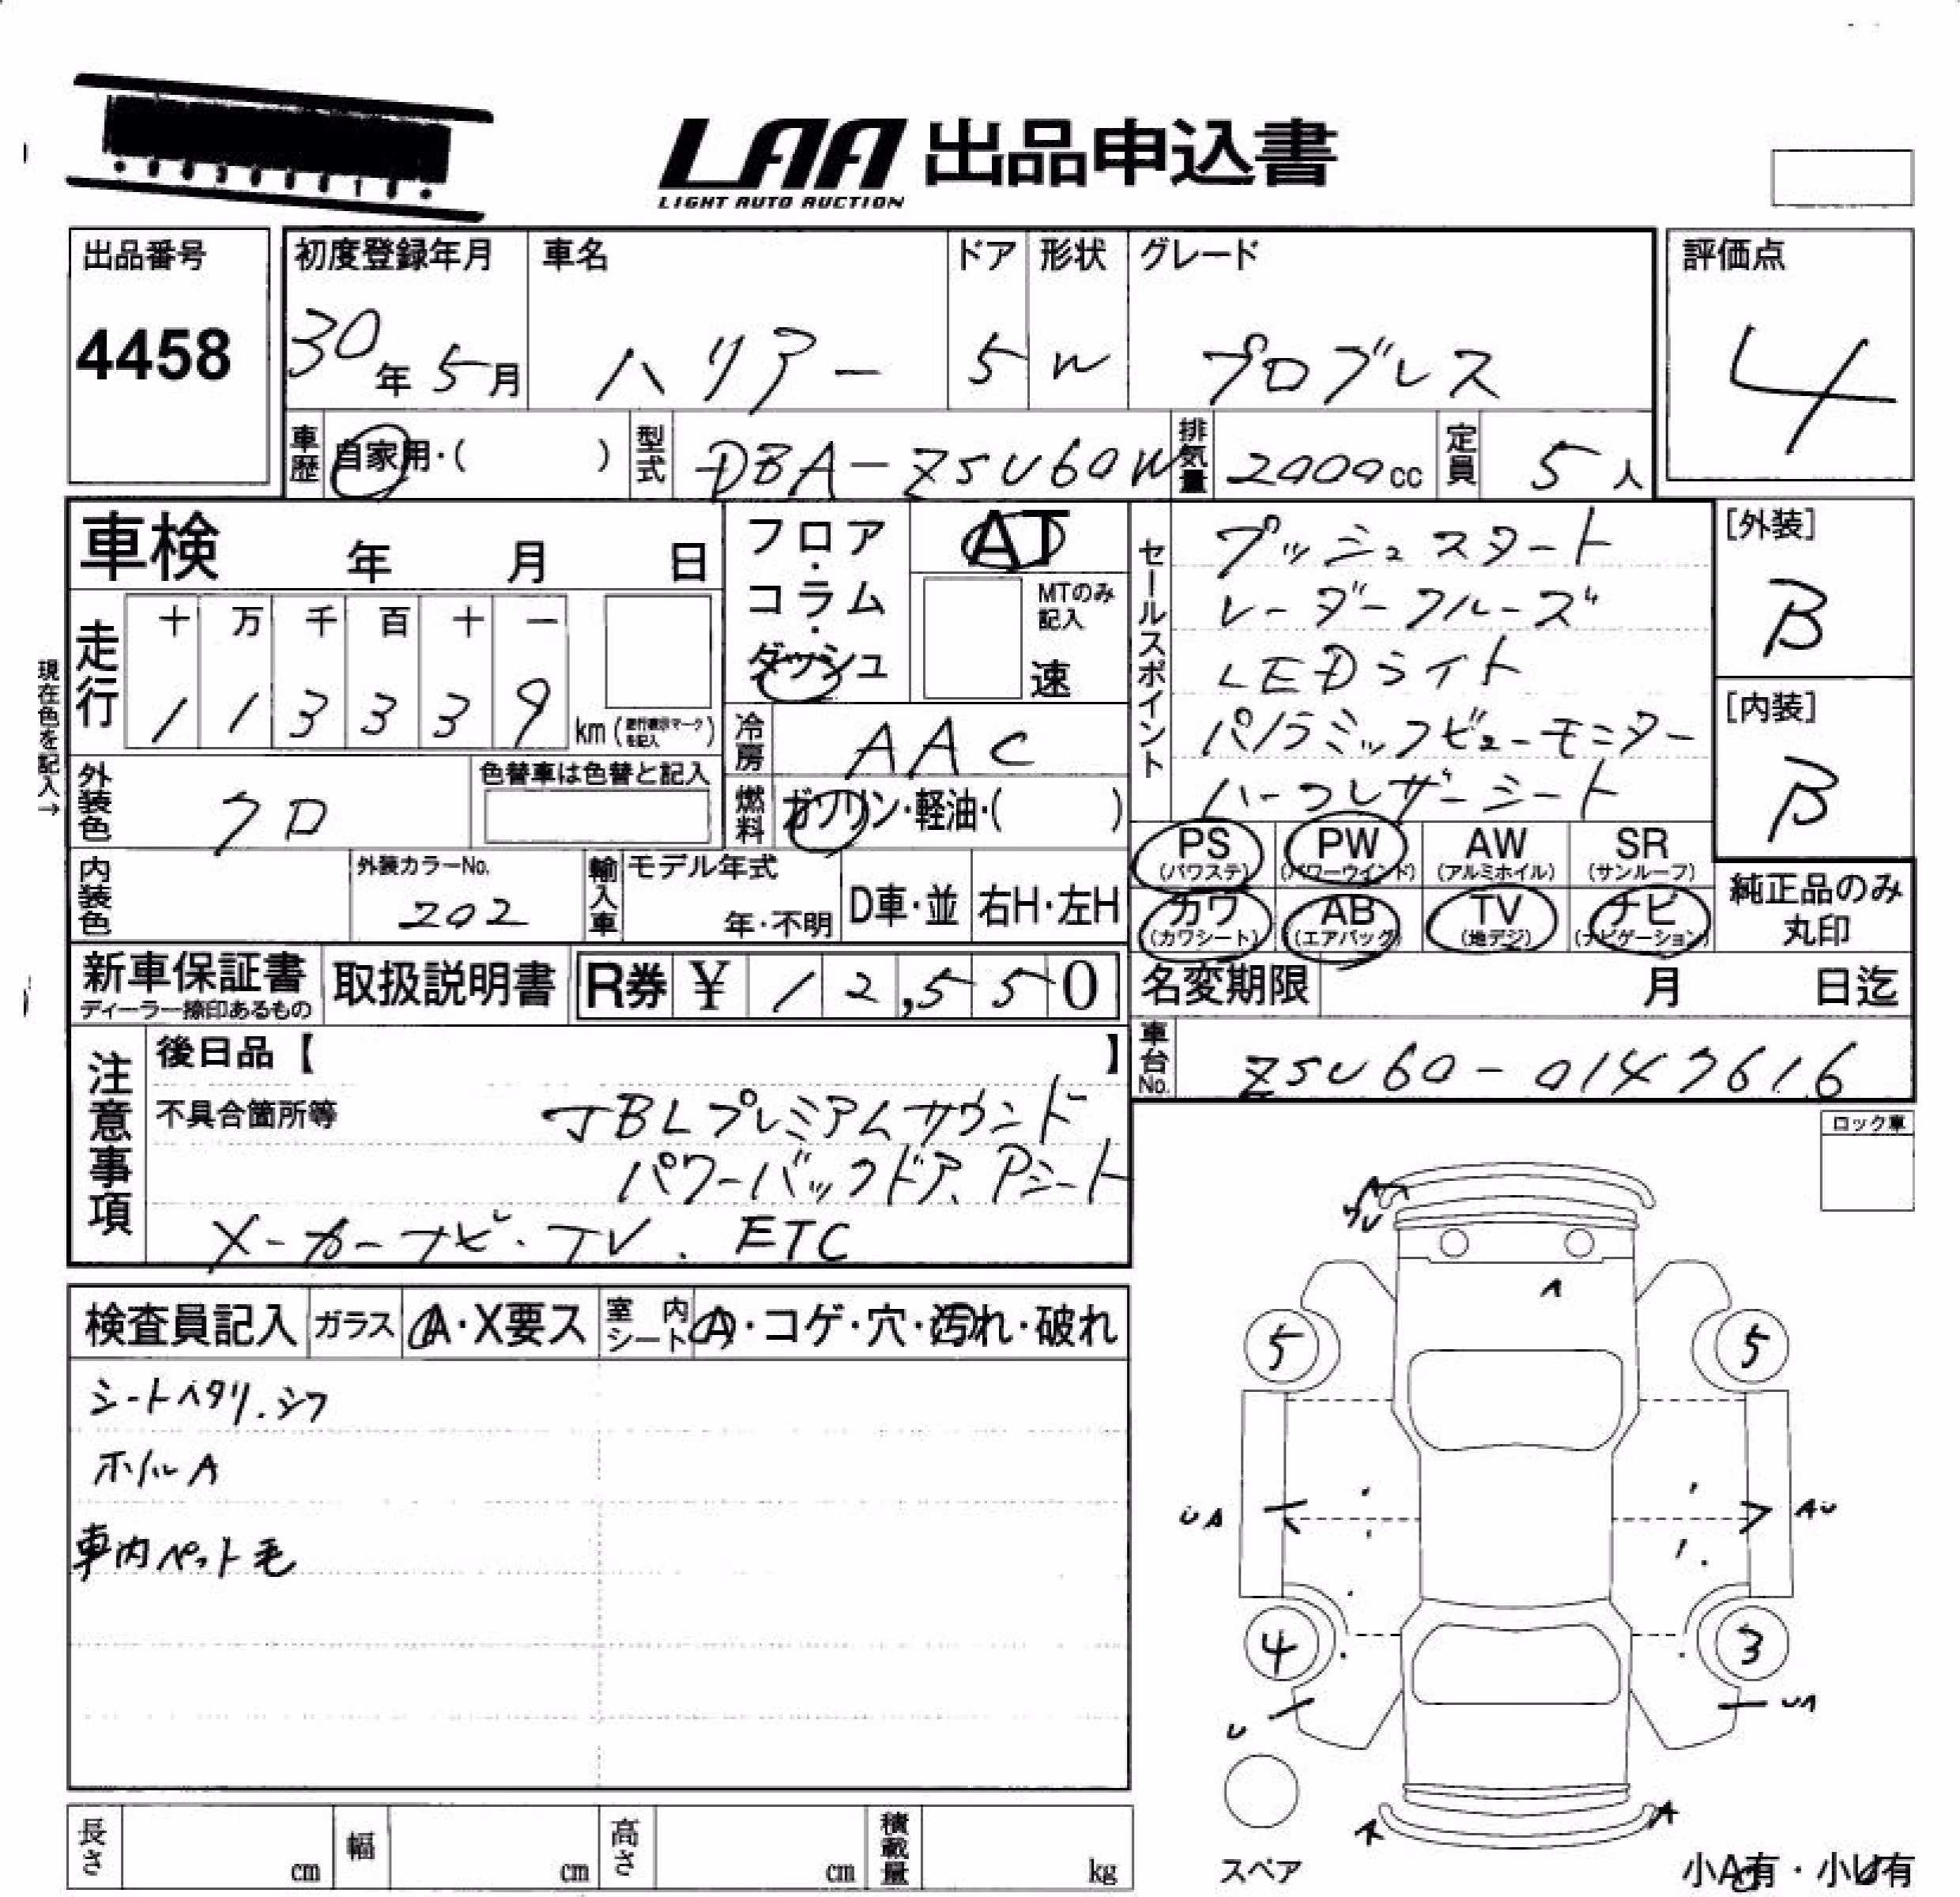 LAA 出品申込書
LIGHT AUTO AUCTION
出品番号
4458
初度登録年月 車名 ドア 形状 グレード
30年 5月 ハリアー 5 W プログレス
評価点
4
車歴 自家用・( ) 型式 DBA-ZSU60W 排気量 2000cc 定員 5人
車検 年 月 日
フロア・コラム・ダッシュ
AT
MTのみ記入
速
走行
十 万 千 百 十 一
1 1 3 3 3 9 km
現在色を記入→
冷房 AAC
外装色 クロ
色替車は色替と記入
燃料 ガソリン・軽油・( )
内装色
外装カラーNo.
202
輸入車 モデル年式
年・不明
D車・並 右H・左H
セールスポイント
プッシュスタート
レーダークルーズ
LEDライト
パノラミックビューモニター
ハーフレザーシート
[外装]
B
[内装]
B
PS (パワステ) PW (パワーウインド) AW (アルミホイル) SR (サンルーフ)
カワ (カワシート) AB (エアバッグ) TV (地デジ) ナビ (ナビゲーション)
純正品のみ丸印
新車保証書
ディーラー捺印あるもの
取扱説明書
R券 ¥ 12,550
名変期限 月 日迄
車台No. ZSU60-0147616
注意事項
後日品【 】
不具合箇所等 JBLプレミアムサウンド
パワーバックドア、Pシート
メーカーナビ・TV. ETC
ロック車
検査員記入 ガラス A・X要ス 室内シート A・コゲ・穴・汚れ・破れ
シートヘタリ.シワ
ホイルA
車内ペット毛
A
5 5
UA AU
4 3
U UA
A A
スペア
小A有・小U有
長さ cm 幅 cm 高さ cm 積載量 kg